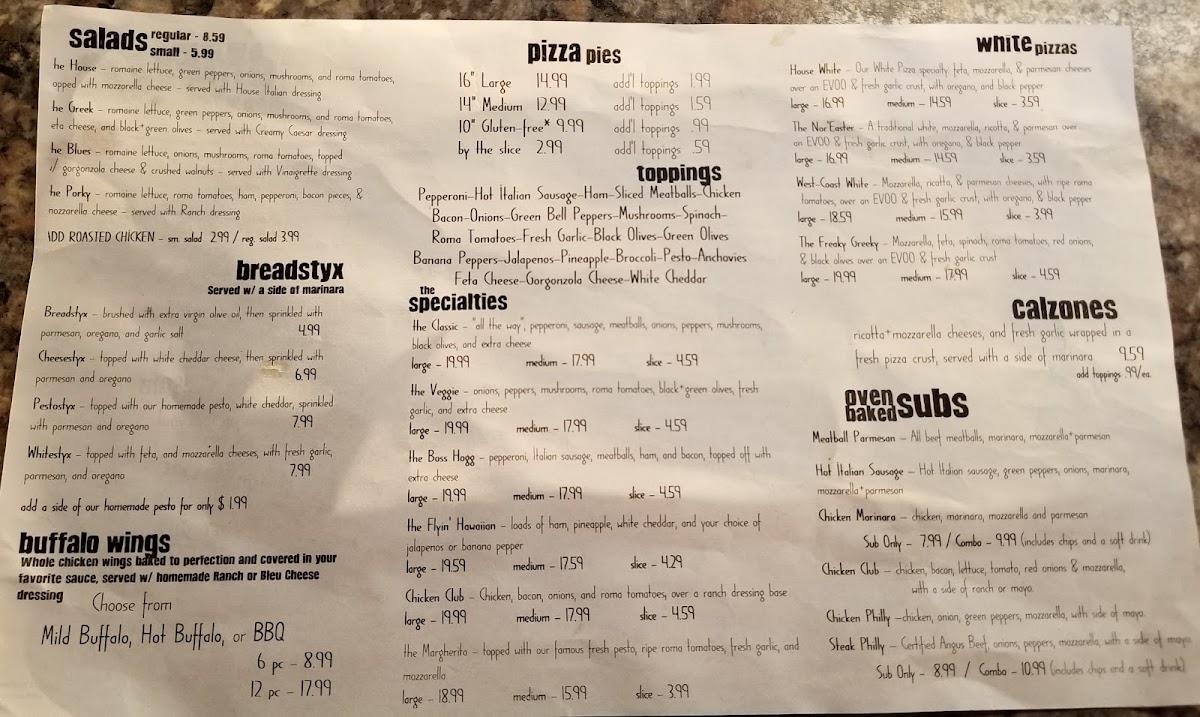 salads regular - 8.59
small - 5.99
he House – romaine lettuce, green peppers, onions, mushrooms, and roma tomatoes,
opped with mozzarella cheese – served with House Italian dressing
he Greek – romaine lettuce, green peppers, onions, mushrooms, and roma tomatoes,
eta cheese, and black+green olives – served with Creamy Caesar dressing
he Blues – romaine lettuce, onions, mushrooms, roma tomatoes, topped
/ gorgonzola cheese & crushed walnuts – served with Vinaigrette dressing
he Porky – romaine lettuce, roma tomatoes, ham, pepperoni, bacon pieces, &
mozzarella cheese – served with Ranch dressing
ADD ROASTED CHICKEN – sm. salad 2.99 / reg. salad 3.99
breadstyx
Served w/ a side of marinara
Breadstyx – brushed with extra virgin olive oil, then sprinkled with
parmesan, oregano, and garlic salt 4.99
Cheesestyx – topped with white cheddar cheese, then sprinkled with
parmesan and oregano 6.99
Pestostyx – topped with our homemade pesto, white cheddar, sprinkled
with parmesan and oregano 7.99
Whitestyx – topped with feta, and mozzarella cheeses, with fresh garlic,
parmesan, and oregano 7.99
add a side of our homemade pesto for only $ 1.99
buffalo wings
Whole chicken wings baked to perfection and covered in your
favorite sauce, served w/ homemade Ranch or Bleu Cheese
dressing
Choose from
Mild Buffalo, Hot Buffalo, or BBQ
6 pc – 8.99
12 pc – 17.99
pizza pies
16" Large 14.99 add'l toppings 1.99
14" Medium 12.99 add'l toppings 1.59
10" Gluten-free* 9.99 add'l toppings .99
by the slice 2.99 add'l toppings .59
toppings
Pepperoni–Hot Italian Sausage–Ham–Sliced Meatballs–Chicken
Bacon–Onions–Green Bell Peppers–Mushrooms–Spinach–
Roma Tomatoes–Fresh Garlic–Black Olives–Green Olives
Banana Peppers–Jalapenos–Pineapple–Broccoli–Pesto–Anchovies
Feta Cheese–Gorgonzola Cheese–White Cheddar
the
specialties
the Classic – "all the way", pepperoni, sausage, meatballs, onions, peppers, mushrooms,
black olives, and extra cheese
large – 19.99 medium – 17.99 slice – 4.59
the Veggie – onions, peppers, mushrooms, roma tomatoes, black+green olives, fresh
garlic, and extra cheese
large – 19.99 medium – 17.99 slice – 4.59
the Boss Hogg – pepperoni, Italian sausage, meatballs, ham, and bacon, topped off with
extra cheese
large – 19.99 medium – 17.99 slice – 4.59
the Flyin' Hawaiian – loads of ham, pineapple, white cheddar, and your choice of
jalapenos or banana pepper
large – 19.59 medium – 17.59 slice – 4.29
Chicken Club – Chicken, bacon, onions, and roma tomatoes, over a ranch dressing base
large – 19.99 medium – 17.99 slice – 4.59
the Margherita – topped with our famous fresh pesto, ripe roma tomatoes, fresh garlic, and
mozzarella
large – 18.99 medium – 15.99 slice – 3.99
white pizzas
House White – Our White Pizza specialty feta, mozzarella, & parmesan cheeses
over an EVOO & fresh garlic crust, with oregano, and black pepper
large – 16.99 medium – 14.59 slice – 3.59
The Nor'Easter – A traditional white, mozzarella, ricotta, & parmesan over
an EVOO & fresh garlic crust, with oregano, & black pepper
large – 16.99 medium – 14.59 slice – 3.59
West-Coast White – Mozzarella, ricotta, & parmesan cheeses, with ripe roma
tomatoes, over an EVOO & fresh garlic crust, with oregano, & black pepper
large – 18.59 medium – 15.99 slice – 3.99
The Freaky Greeky – Mozzarella, feta, spinach, roma tomatoes, red onions,
& black olives over an EVOO & fresh garlic crust
large – 19.99 medium – 17.99 slice – 4.59
calzones
ricotta+mozzarella cheeses, and fresh garlic wrapped in a
fresh pizza crust, served with a side of marinara 9.59
add toppings .99/ea.
oven
baked subs
Meatball Parmesan – All beef meatballs, marinara, mozzarella+parmesan
Hot Italian Sausage – Hot Italian sausage, green peppers, onions, marinara,
mozzarella+parmesan
Chicken Marinara – chicken, marinara, mozzarella and parmesan
Sub Only – 7.99 / Combo – 9.99 (includes chips and a soft drink)
Chicken Club – chicken, bacon, lettuce, tomato, red onions & mozzarella,
with a side of ranch or mayo.
Chicken Philly –chicken, onion, green peppers, mozzarella, with side of mayo.
Steak Philly – Certified Angus Beef, onions, peppers, mozzarella, with a side of mayo.
Sub Only – 8.99 / Combo – 10.99 (includes chips and a soft drink)